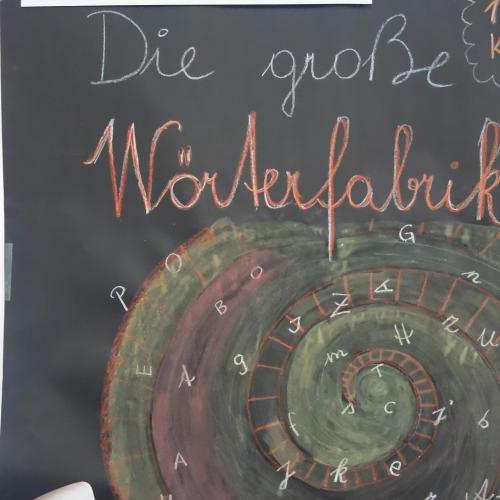 Die große
Wörterfabrik
G
P O B O n
Z
E A g m H u
T
s c
A f k e